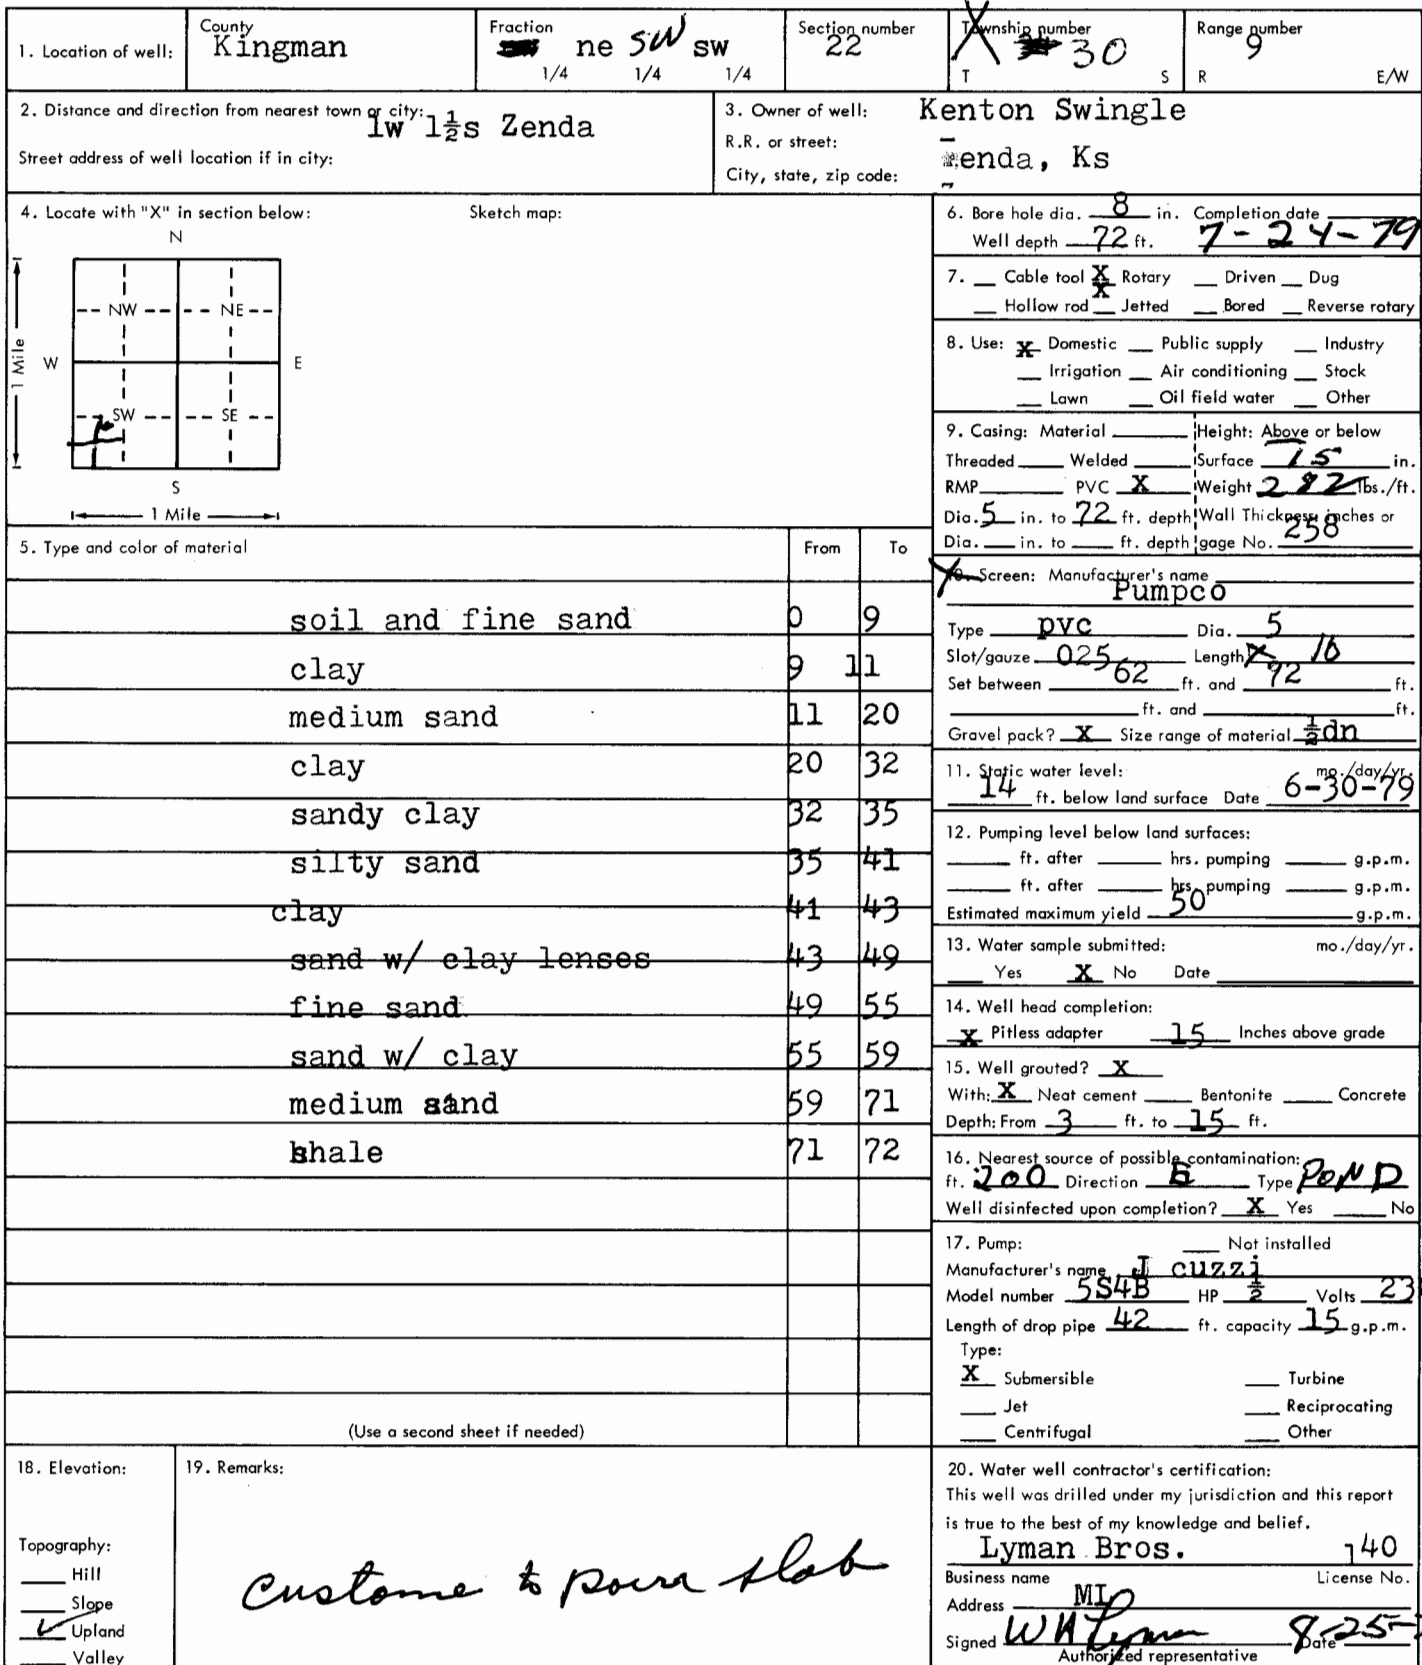 1. Location of well: County Kingman Fraction ne SW sw 1/4 1/4 1/4 Section number 22 Township number 30 T S Range number 9 R E/W
2. Distance and direction from nearest town or city: 1w 1½s Zenda
Street address of well location if in city:
3. Owner of well: Kenton Swingle
R.R. or street:
City, state, zip code: Zenda, Ks
4. Locate with "X" in section below: Sketch map:
N
NW NE
W E
1 Mile
SW SE
S
1 Mile
5. Type and color of material From To
soil and fine sand 0 9
clay 9 11
medium sand 11 20
clay 20 32
sandy clay 32 35
silty sand 35 41
clay 41 43
sand w/ clay lenses 43 49
fine sand 49 55
sand w/ clay 55 59
medium sand 59 71
shale 71 72
(Use a second sheet if needed)
6. Bore hole dia. 8 in. Completion date
Well depth 72 ft. 7-24-79
7. Cable tool X Rotary Driven Dug
Hollow rod X Jetted Bored Reverse rotary
8. Use: X Domestic Public supply Industry
Irrigation Air conditioning Stock
Lawn Oil field water Other
9. Casing: Material Height: Above or below
Threaded Welded Surface 15 in.
RMP PVC X Weight 282 lbs./ft.
Dia. 5 in. to 72 ft. depth Wall Thickness: inches or
Dia. in. to ft. depth gage No. 258
10. Screen: Manufacturer's name
Pumpco
Type pvc Dia. 5
Slot/gauze 025 Length 10
Set between 62 ft. and 72 ft.
ft. and ft.
Gravel pack? X Size range of material ½dn
11. Static water level: mo./day/yr.
14 ft. below land surface Date 6-30-79
12. Pumping level below land surfaces:
ft. after hrs. pumping g.p.m.
ft. after hrs. pumping g.p.m.
Estimated maximum yield 50 g.p.m.
13. Water sample submitted: mo./day/yr.
Yes X No Date
14. Well head completion:
X Pitless adapter 15 Inches above grade
15. Well grouted? X
With: X Neat cement Bentonite Concrete
Depth: From 3 ft. to 15 ft.
16. Nearest source of possible contamination:
ft. 200 Direction E Type POND
Well disinfected upon completion? X Yes No
17. Pump: Not installed
Manufacturer's name J cuzzi
Model number 5S4B HP ½ Volts 23
Length of drop pipe 42 ft. capacity 15 g.p.m.
Type:
X Submersible Turbine
Jet Reciprocating
Centrifugal Other
18. Elevation:
Topography:
Hill
Slope
✓ Upland
Valley
19. Remarks:
custome to pour slab
20. Water well contractor's certification:
This well was drilled under my jurisdiction and this report
is true to the best of my knowledge and belief.
Lyman Bros. 140
Business name License No.
Address
Signed W H Lyman Date 8-25-
Authorized representative